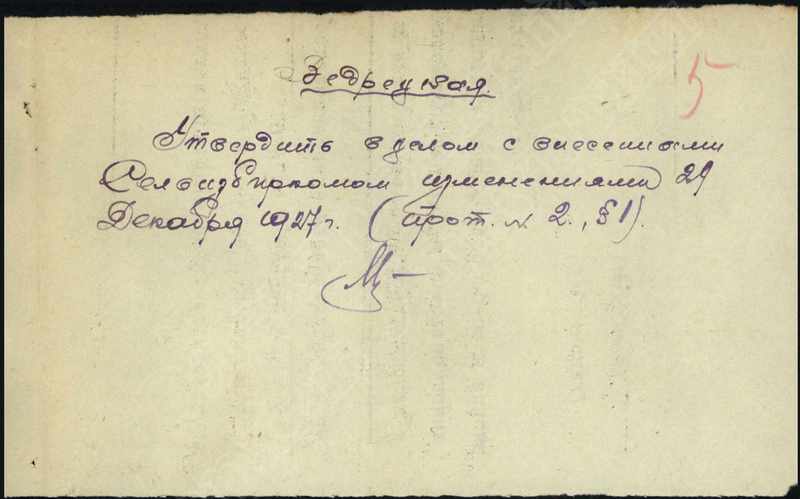 5
Утвердить в целом с внесенными
Сельизбиркомом изменениями 29
Декабря 1927 г. (прот. № 2., § 1).